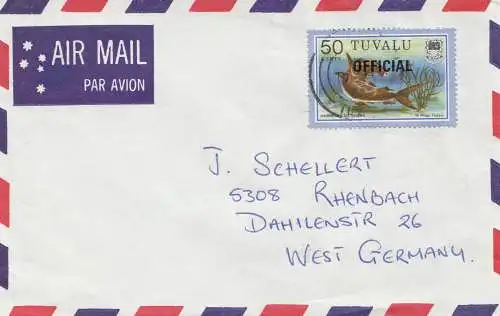 AIR MAIL
PAR AVION
50 TUVALU
OFFICIAL
J. SCHELLERT
5308 RHENBACH
DAHILENSTR 26
WEST GERMANY.